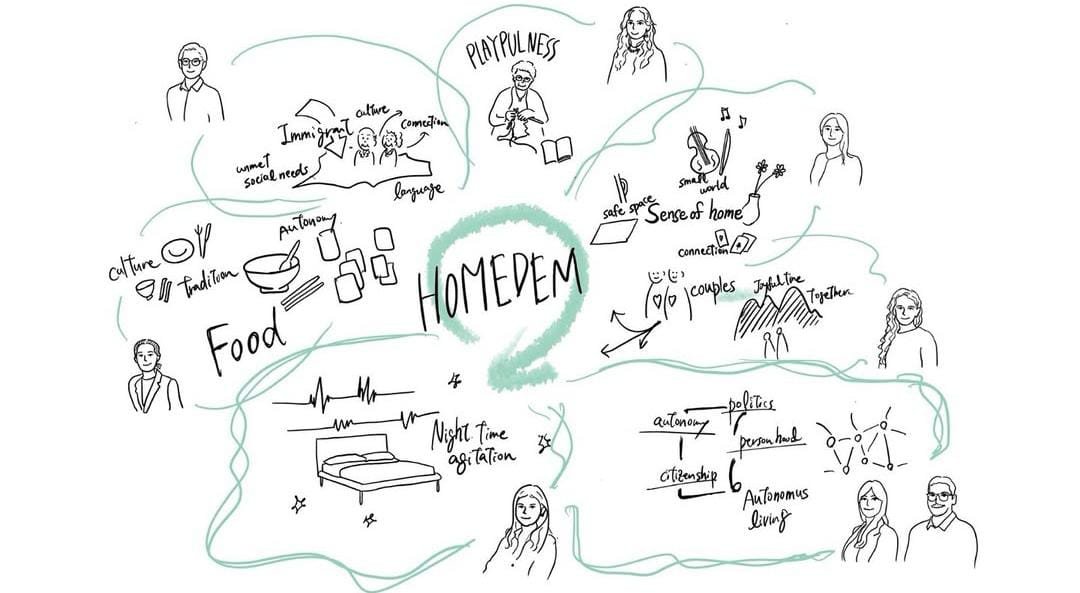 PLAYPULNESS
Immigrant
culture
connection
unmet
social needs
language
small
world
safe space
Sense of home
connection
culture
Tradition
Autonomy
Food
HOMEDEM
couples
Joyful time
Together
Night time
agitation
politics
autonomy
personhood
citizenship
Autonomus
living